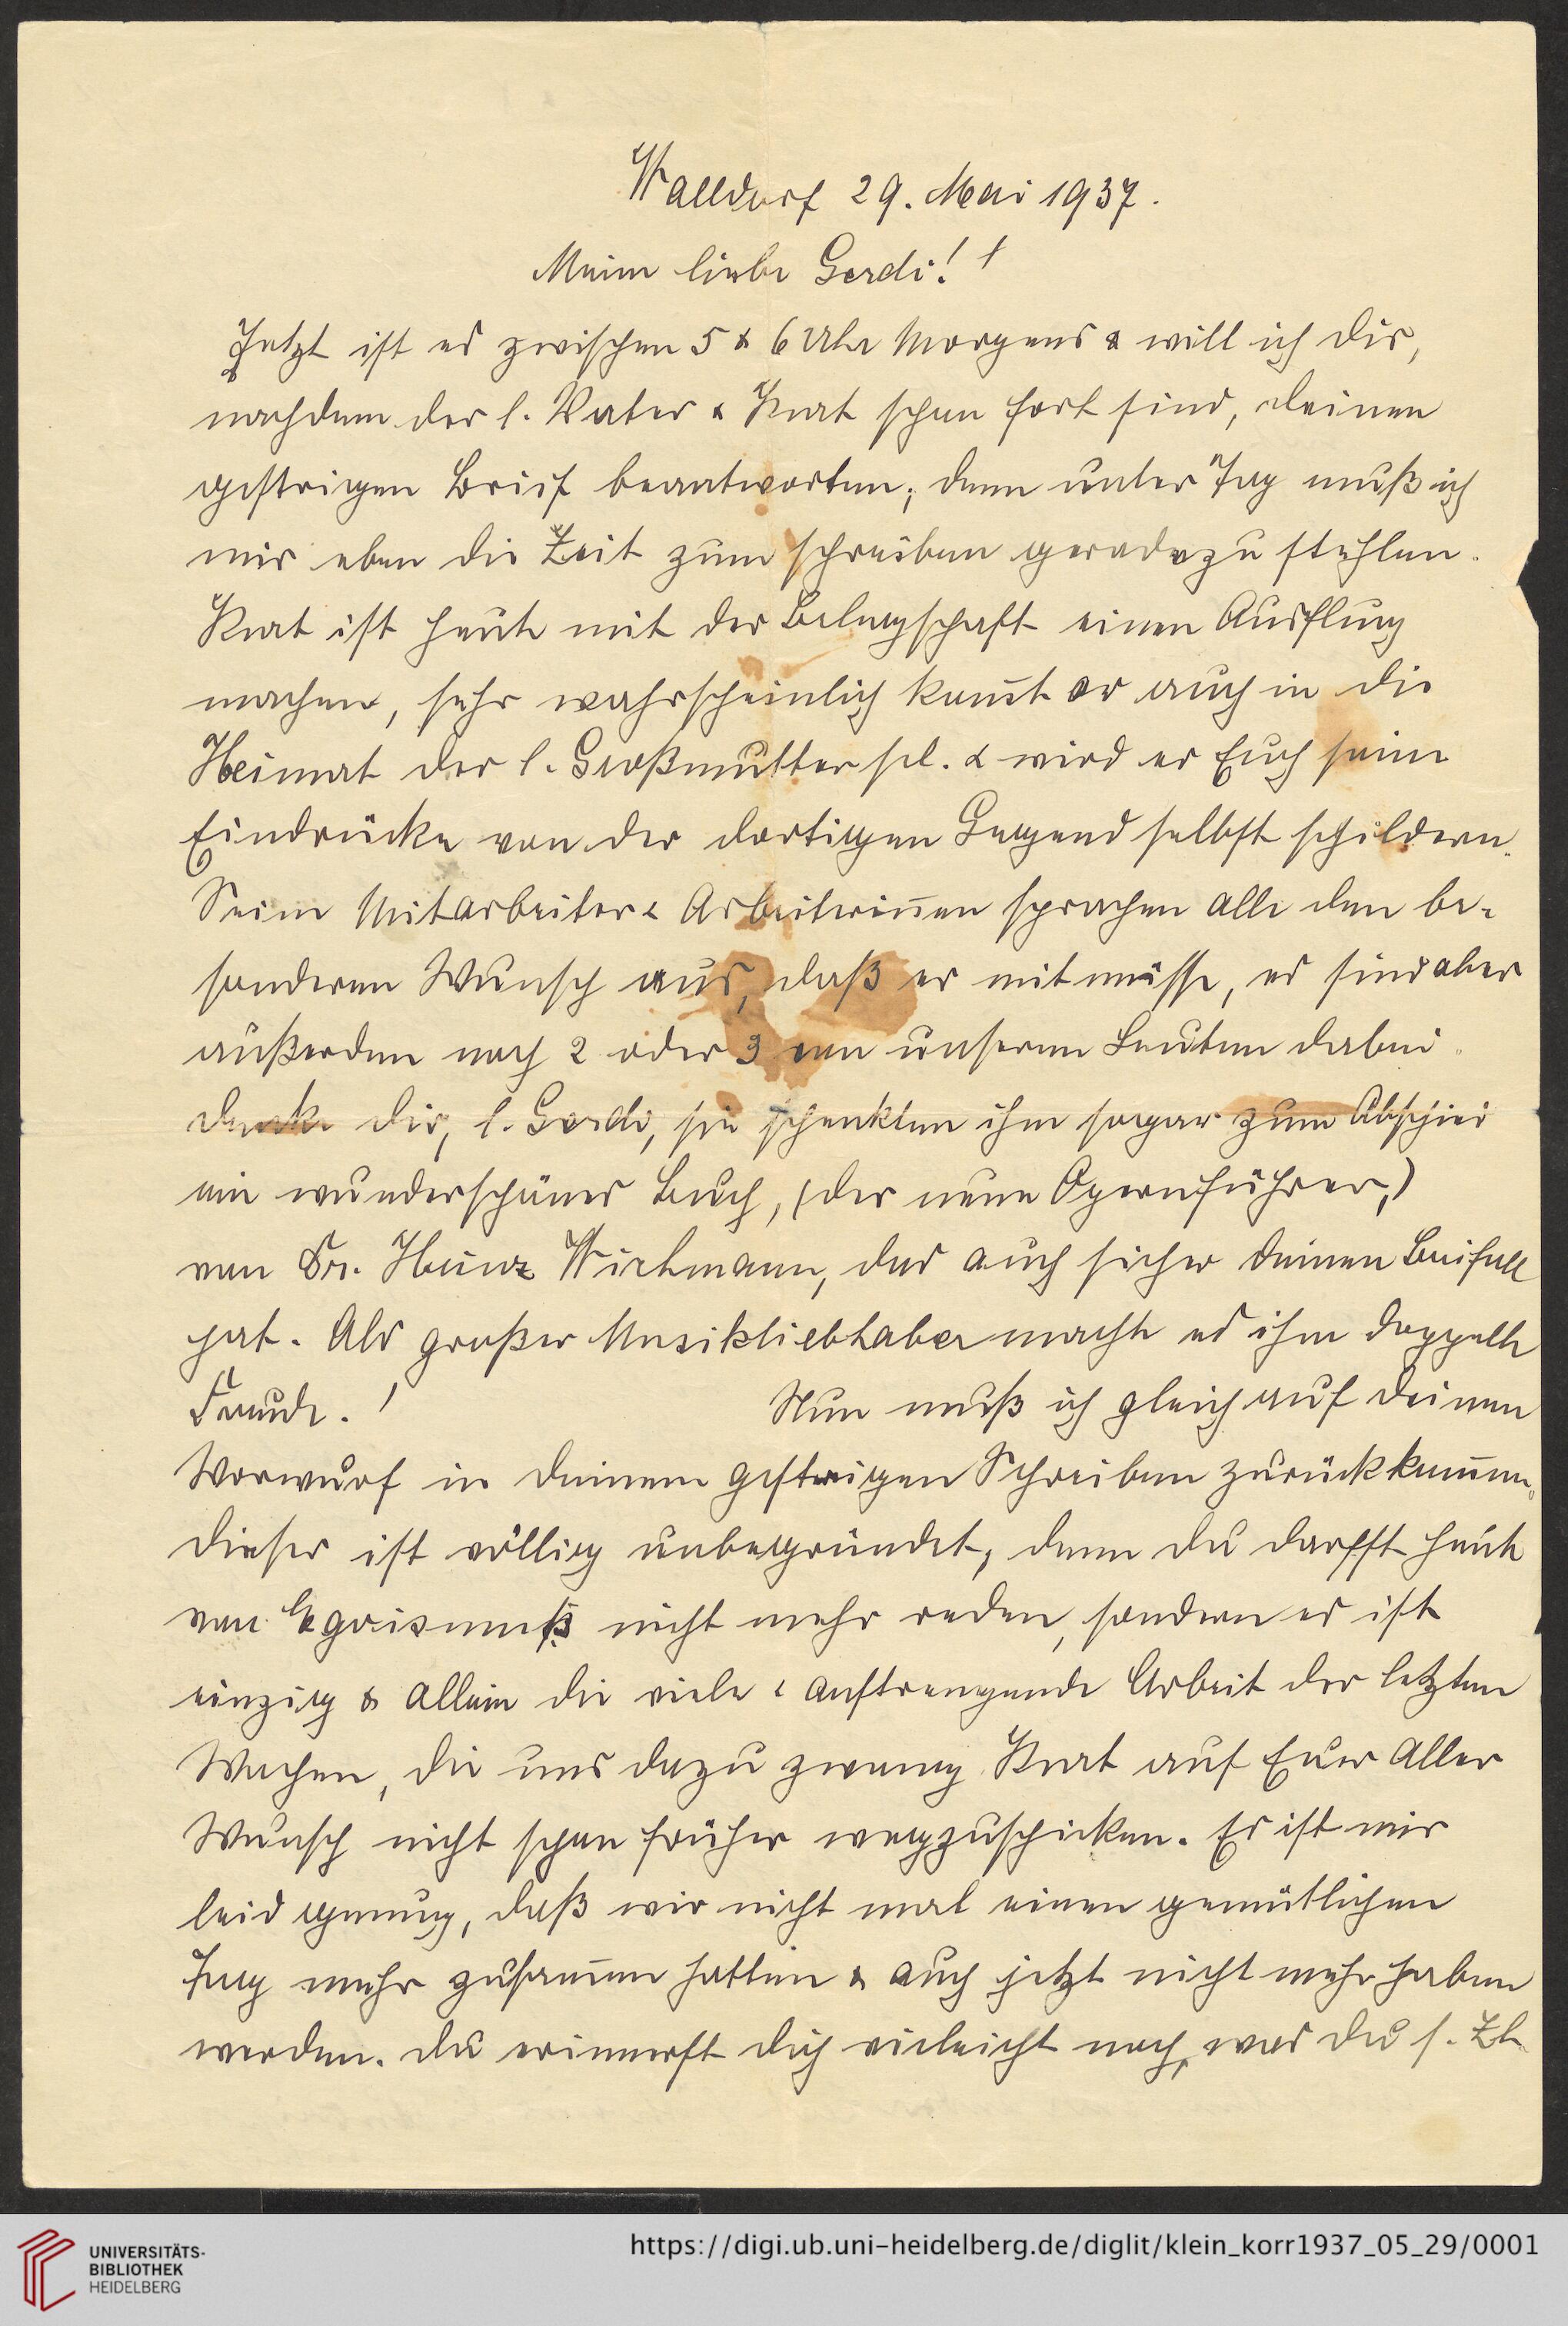 Walldorf 29. Mai 1937.
Meine liebe Gerdi!!
Jetzt ist es zwischen 5 & 6 Uhr Morgens & will ich dir,
nachdem der l. Vater & Kurt schon fort sind, deinen
gestrigen Brief beantworten; denn unter Tag muß ich
mir eben die Zeit zum schreiben geradezu stehlen.
Kurt ist heute mit der Belegschaft einen Ausflug
machen, sehr wahrscheinlich kom̄t er auch in die
Heimat der l. Großmutter sel. & wird er Euch seine
Eindrücke von der dortigen Gegend selbst schildern.
Seine Mitarbeiter & Arbeiterin̄en sprachen alle den be-
sonderen Wunsch aus, daß er mit müsse, es sind aber
außerdem noch 2 oder 3 von unseren Leuten dabei.
denke dir, l. Gerdi, sie schenkten ihm sogar zum Abschied
ein wunderschönes Buch, (der neue Opernführer,)
von Dr. Heinz Wichmann, das auch sicher deinen Beifall
hat. Als großer Musikliebhaber machte es ihm doppelte
Freude.! Nun muß ich gleich auf deinen
Vorwurf in deinem gestrigen Schreiben zurückkom̄en,
dieser ist völlig unbegründet, denn du darfst heute
von Egoismuß nicht mehr reden, sondern es ist
einzig & allein die viele & anstrengende Arbeit der letzten
Wochen, die uns dazu zwang Kurt auf Euer Aller
Wunsch nicht schon früher wegzuschicken. Es ist mir
leid genug, daß wir nicht mal einen gemütlichen
Tag mehr zusam̄en hatten & auch jetzt nicht mehr haben
werden. du erinnerst dich vieleicht noch, was du s. Zt.
UNIVERSITÄTS-
BIBLIOTHEK
HEIDELBERG
https://digi.ub.uni-heidelberg.de/diglit/klein_korr1937_05_29/0001